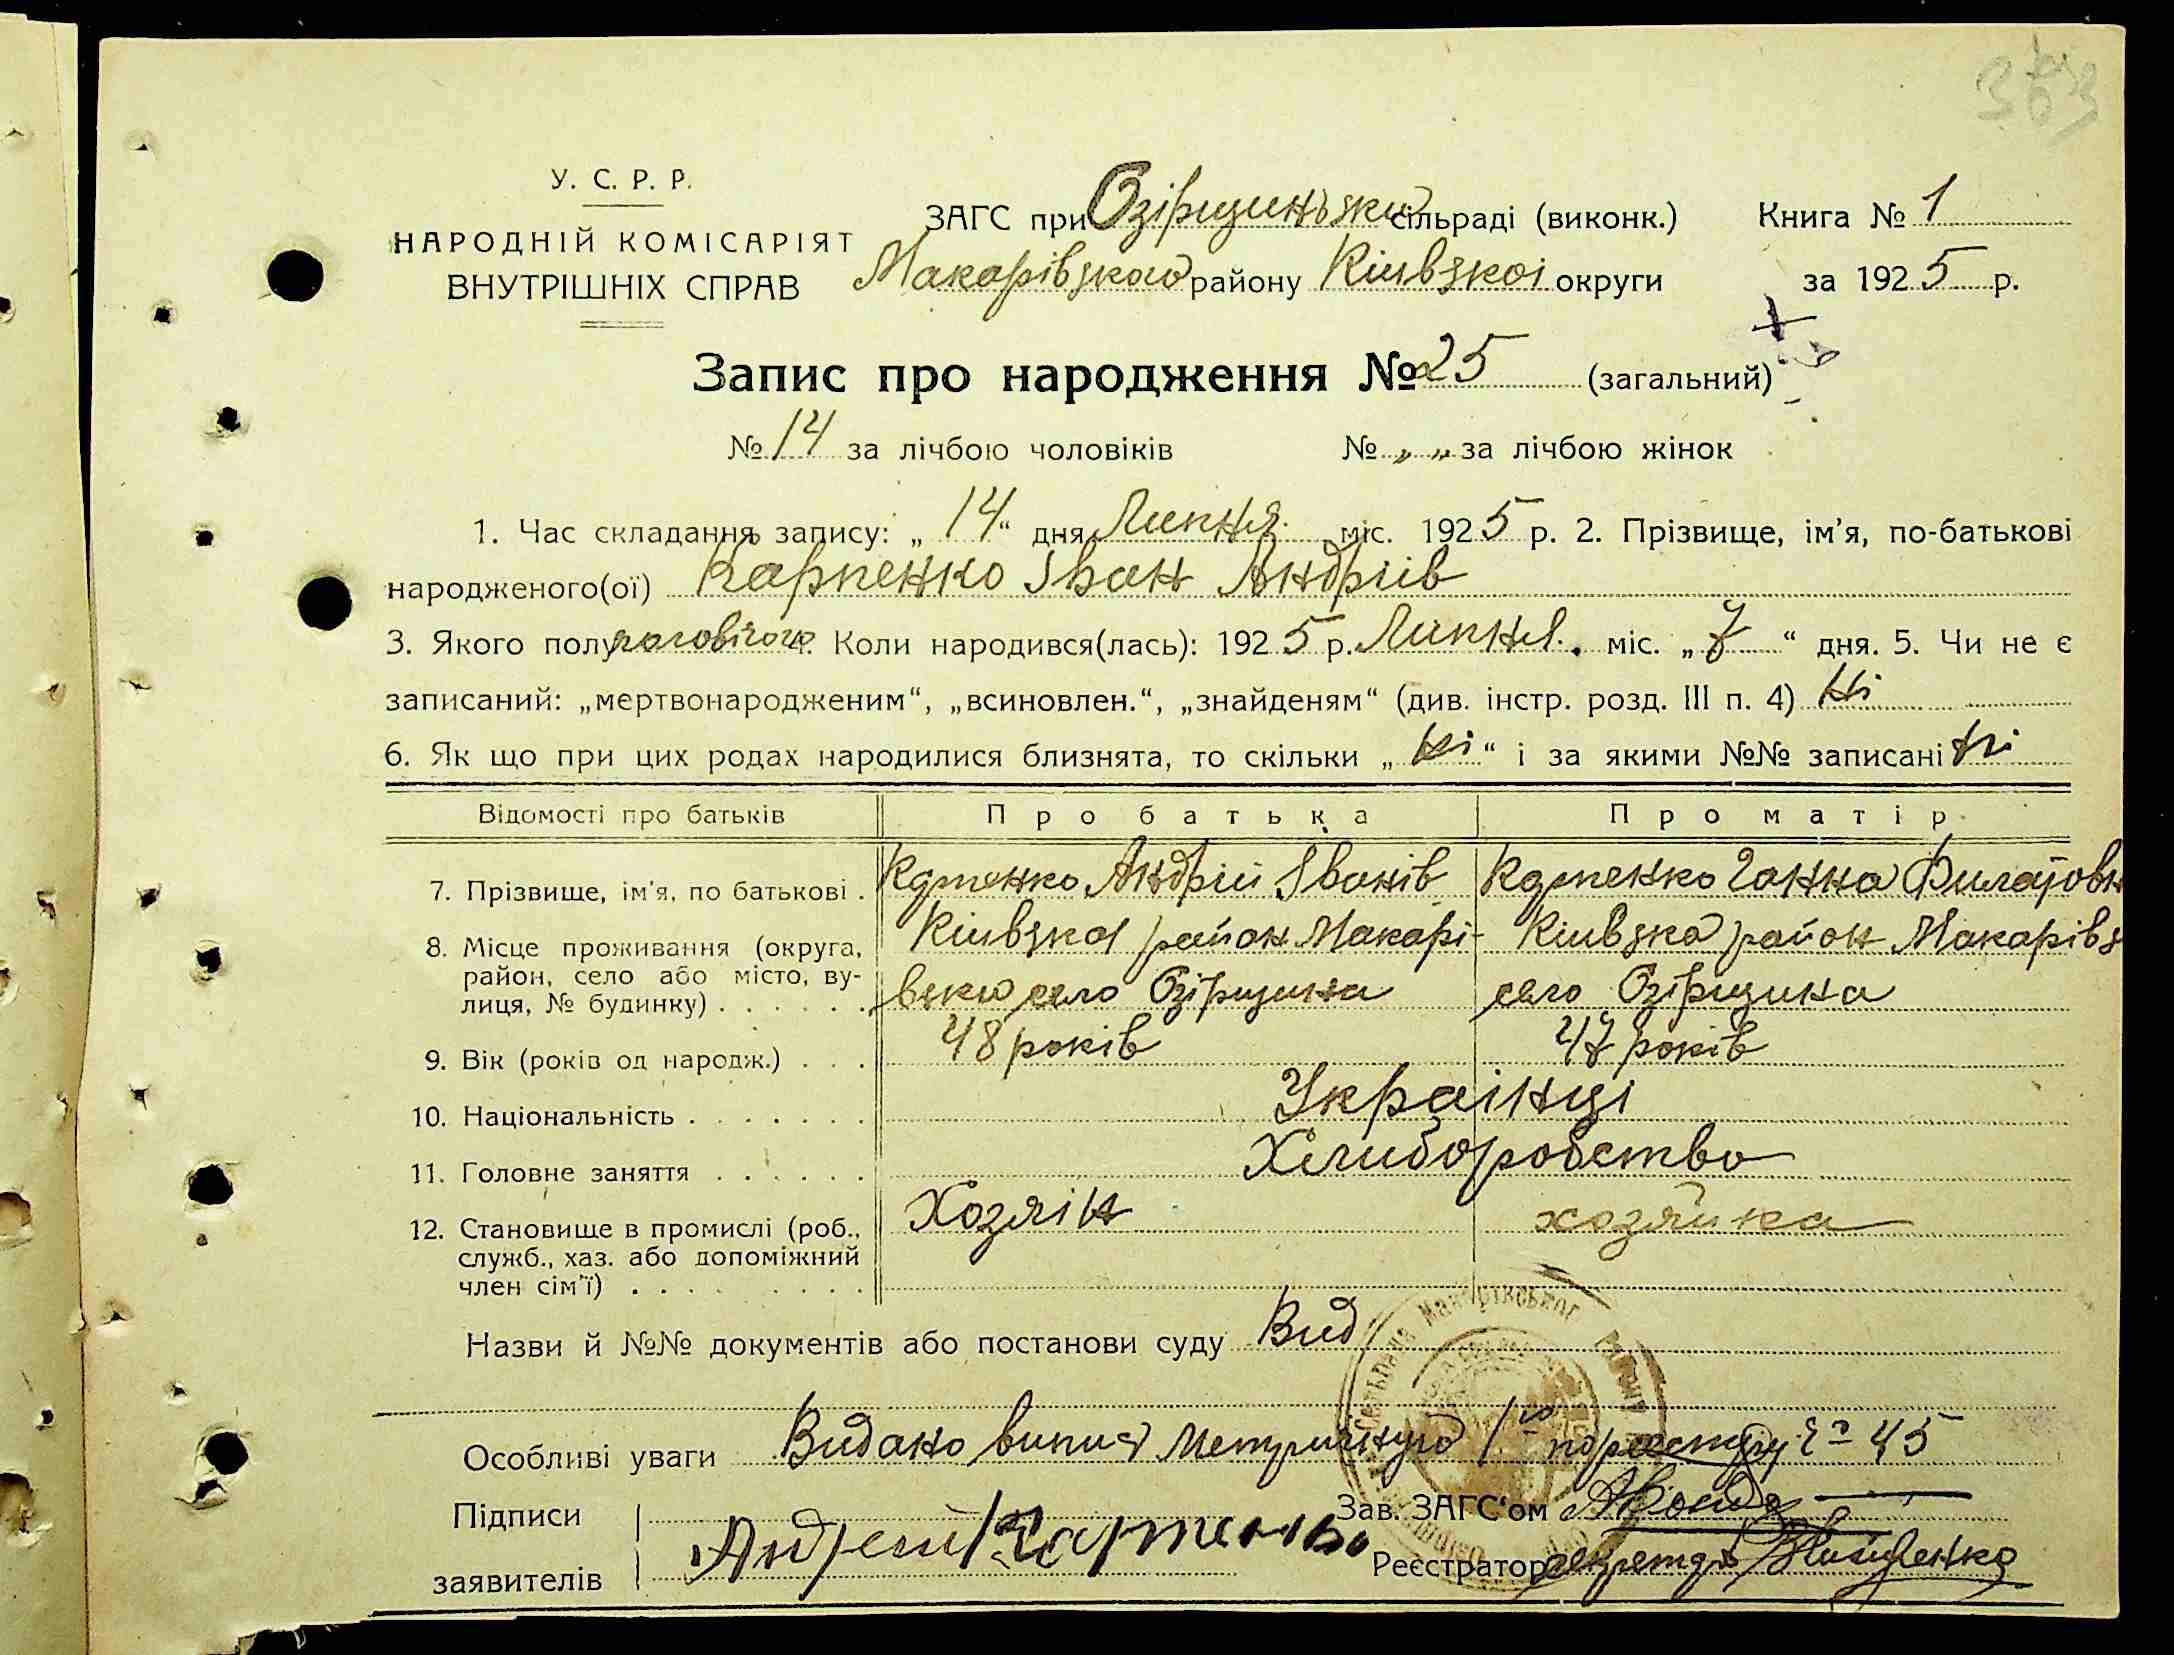 363
У. С. Р. Р.
НАРОДНІЙ КОМІСАРІЯТ
ВНУТРІШНІХ СПРАВ
ЗАГС при Озірщинській сільраді (виконк.) Книга № 1
Макарівського району Київської округи за 1925 р.
Запис про народження № 25 (загальний)
№ 14 за лічбою чоловіків № „ „ за лічбою жінок
1. Час складання запису: „ 14 “ дня Липня міс. 1925 р. 2. Прізвище, ім'я, по-батькові
народженого(ої) Карпенко Іван Андріїв
3. Якого полу чоловічого 4. Коли народився(лась): 1925 р. Липня. міс. „ 7 “ дня. 5. Чи не є
записаний: „мертвонародженим“, „всиновлен.“, „знайденям“ (див. інстр. розд. III п. 4) Ні
6. Як що при цих родах народилися близнята, то скільки „ Ні “ і за якими №№ записані Ні
Відомості про батьків Про батька Про матір
7. Прізвище, ім'я, по батькові . Карпенко Андрій Іванів Карпенко Ганна Филатовн
8. Місце проживання (округа, район, село або місто, вулиця, № будинку) . . . . . .
Київська район Макарі-
село Озірщина
Київська район Макарівз
село Озірщина
9. Вік (років од народж.) . . . 48 років 47 років
10. Національність . . . . . . . Українці
11. Головне заняття . . . . . . Хлиборобство
12. Становище в промислі (роб., Хозяін хозяйка
служб., хаз. або допоміжний
член сім'ї) . . . . . . . . .
Назви й №№ документів або постанови суду Вид
Особливі уваги Видано випис Метричную по реестру № 45
Підписи Зав. ЗАГС'ом
заявителів Андрей Карпенко Реєстратор секретарь